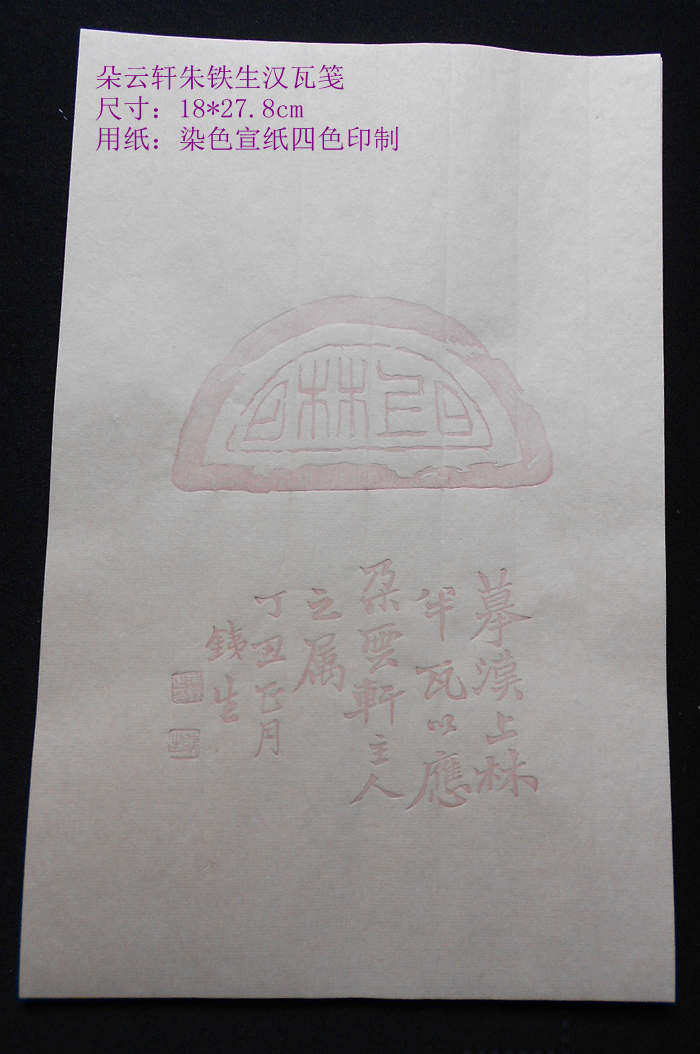 朵云轩朱铁生汉瓦笺
尺寸：18*27.8cm
用纸：染色宣纸四色印制
上林
摹漢上林
半瓦以應
朵雲軒主人
之属
丁丑正月
銕生